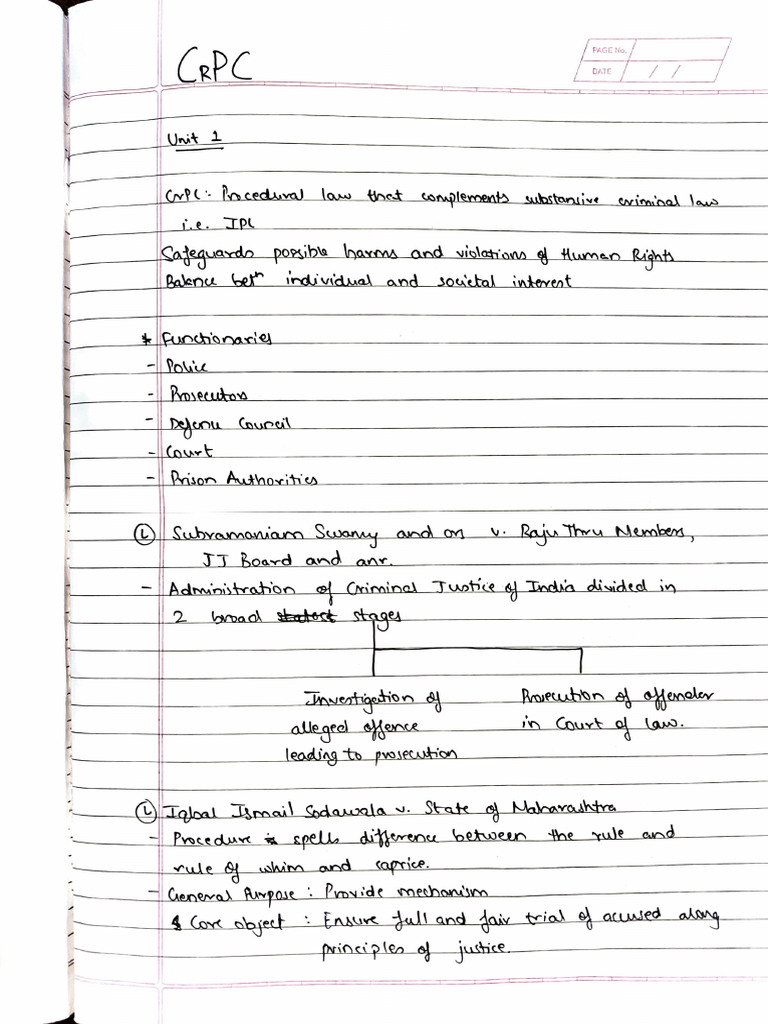 CRPC
PAGE No.
DATE / /
Unit 1
CrPC: Procedural law that complements substansive criminal law
i.e. IPC
Safeguards possible harms and violations of Human Rights
Balance betn individual and societal interest
* Functionaries
- Police
- Prosecutors
- Defence Council
- Court
- Prison Authorities
Ⓛ Subramaniam Swamy and ors v. Raju Thru Members,
JJ Board and anr.
- Administration of Criminal Justice of India divided in
2 broad stages
Investigation of Prosecution of offender
alleged offence in Court of law.
leading to prosecution
Ⓛ Iqbal Ismail Sodawala v. State of Maharashtra
- Procedure spells difference between the rule and
rule of whim and caprice.
- General Purpose : Provide mechanism
& Core object : Ensure full and fair trial of accused along
principles of justice.